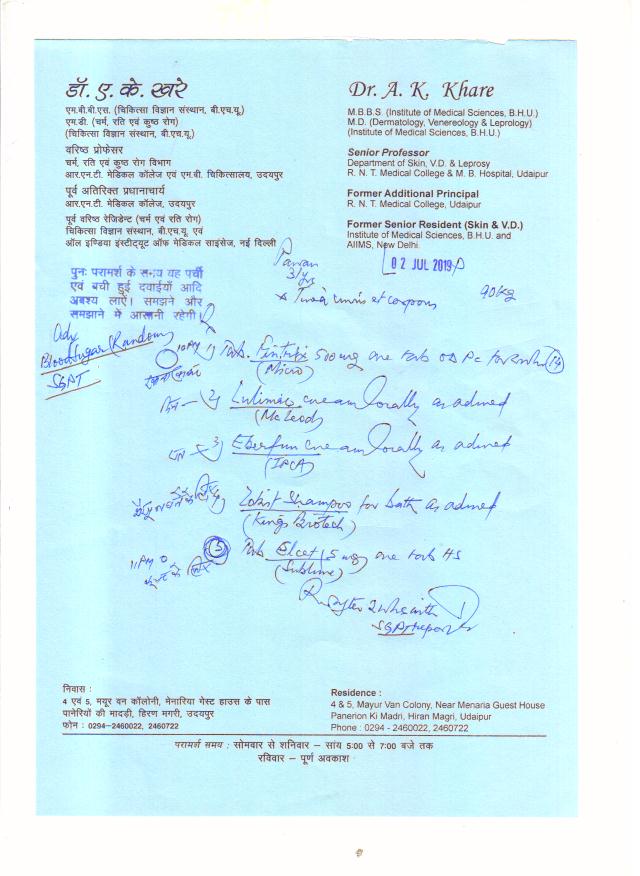 डॉ. ए. के. खरे
एम.बी.बी.एस. (चिकित्सा विज्ञान संस्थान, बी.एच.यू.)
एम.डी. (चर्म, रति एवं कुष्ठ रोग)
(चिकित्सा विज्ञान संस्थान, बी.एच.यू.)
वरिष्ठ प्रोफेसर
चर्म, रति एवं कुष्ठ रोग विभाग
आर.एन.टी. मेडिकल कॉलेज एवं एम.बी. चिकित्सालय, उदयपुर
पूर्व अतिरिक्त प्रधानाचार्य
आर.एन.टी. मेडिकल कॉलेज, उदयपुर
पूर्व वरिष्ठ रेजिडेन्ट (चर्म एवं रति रोग)
चिकित्सा विज्ञान संस्थान, बी.एच.यू. एवं
ऑल इण्डिया इंस्टीट्यूट ऑफ मेडिकल साइंसेज, नई दिल्ली
Dr. A. K. Khare
M.B.B.S. (Institute of Medical Sciences, B.H.U.)
M.D. (Dermatology, Venereology & Leprology)
(Institute of Medical Sciences, B.H.U.)
Senior Professor
Department of Skin, V.D. & Leprosy
R. N. T. Medical College & M. B. Hospital, Udaipur
Former Additional Principal
R. N. T. Medical College, Udaipur
Former Senior Resident (Skin & V.D.)
Institute of Medical Sciences, B.H.U. and
AIIMS, New Delhi
पुनः परामर्श के समय यह पर्ची
एवं बची हुई दवाईयाँ आदि
अवश्य लाएँ। समझने और
समझाने में आसानी रहेगी।
02 JUL 2019
Pawan
90kg
Tinea cruris et corporis
Adv
Blood sugar (Random)
SGPT
10PM 1) Tab. 500 mg one tab OD PC for 2 wks (14)
(Micro)
2) cream locally as advised
(McLeod)
3) Eberfine cream locally as advised
(IPCA)
Shampoo for bath as advised
(Kings Biotech)
11PM 5) Tab 5 mg one tab HS
(Sublime)
R after 2 wks with
SGPT report
निवास :
4 एवं 5, मयूर वन कॉलोनी, मेनारिया गेस्ट हाउस के पास
पानेरियों की मादड़ी, हिरण मगरी, उदयपुर
फोन : 0294-2460022, 2460722
Residence :
4 & 5, Mayur Van Colony, Near Menaria Guest House
Panerion Ki Madri, Hiran Magri, Udaipur
Phone : 0294 - 2460022, 2460722
परामर्श समय : सोमवार से शनिवार – सांय 5:00 से 7:00 बजे तक
रविवार – पूर्ण अवकाश